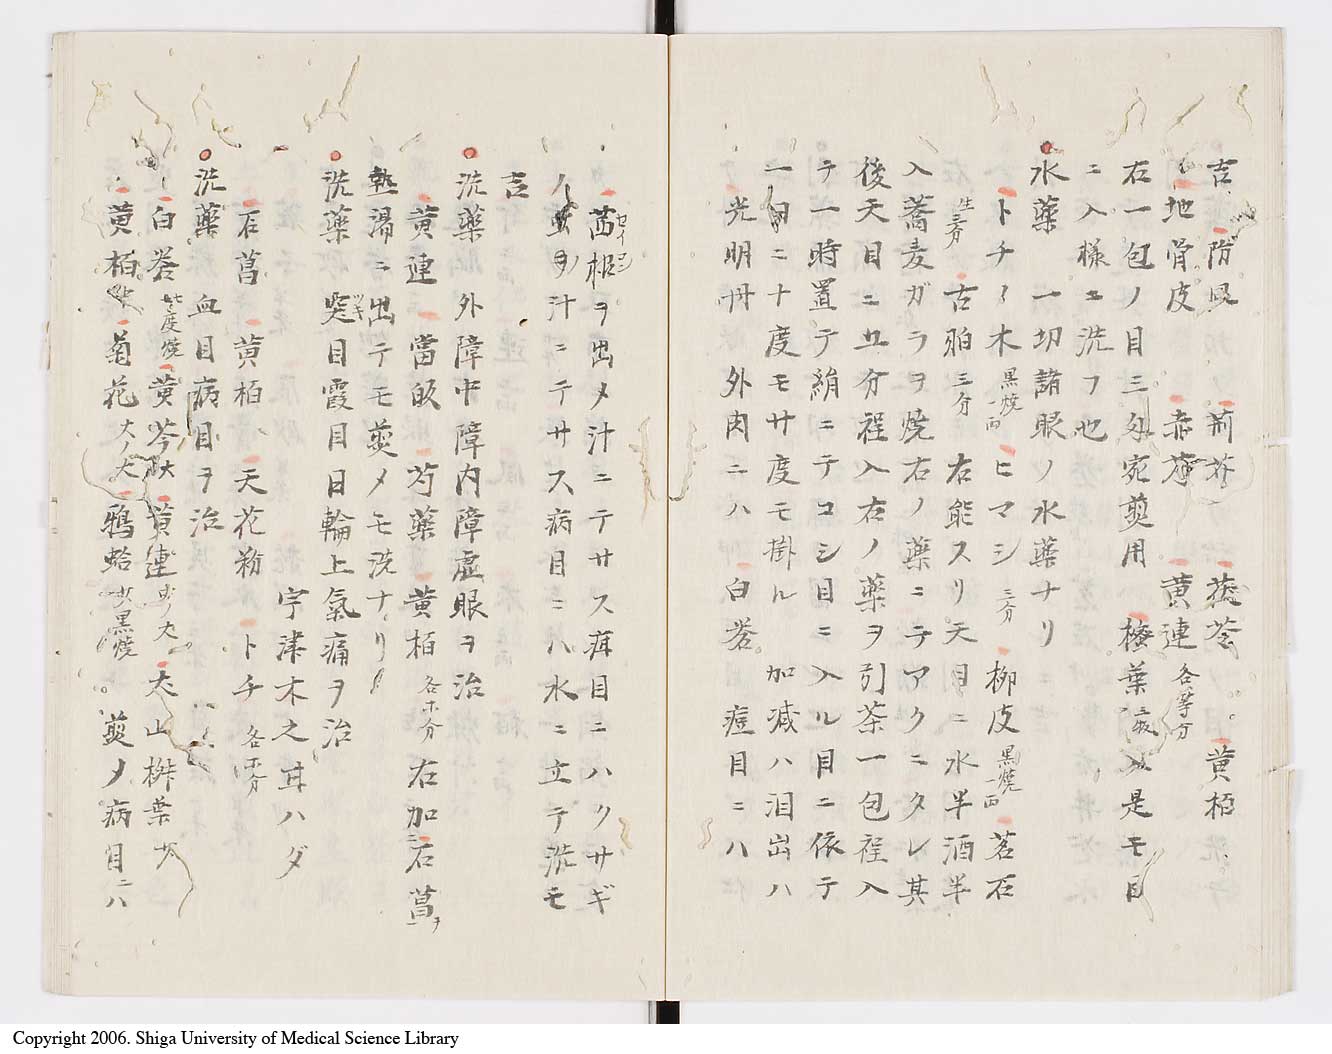 吉 防風 荊芥 茯苓 黄栢
地骨皮 赤芍 黄連 各等分
右一包ノ目三匁宛煎用 梅葉三枚入是モ目
ニ入様ニ洗フ也
水薬 一切諸眼ノ水薬ナリ
トチノ木 黒焼一両 ヒマシ 三分 柳皮 黒焼一両 茗石
生三分 古狛 三分 右能スリ天目ニ水半酒半
入蕎麦ガラヲ焼右ノ薬ニテアクニタレ其
後天目ニ五分程入右ノ薬ヲ引茶一包程入
テ一時置テ絹ニテコシ目ニ入ル目ニ依テ
一日ニ十度モ廿度モ掛ル 加減ハ泪出ハ
光明丹 外肉ニハ 白礬 痘目ニハ
茜根ヲ出メ汁ニテサス疳目ニハクサギ
ノ虫ヲ汁ニテサス病目ニハ水ニ立テ洗モ
吉
洗薬 外障中障内障虚眼ヲ治
黄連 當皈 芍薬 黄栢 各小分 右加ニ石菖一
熱湯ニ出テモ煎メモ洗ナリ
洗薬 突目霞目日輪上氣痛ヲ治
宇津木之耳ハダ
石菖 黄栢 天花粉 トチ 各小分
洗薬 血目病目ヲ治
白礬 此度焼 黄芩 大 黄連 少ノ大 大山椒葉 少
黄栢 菊花 大ノ大 鴉蛤 少黒焼 煎ノ病目ニハ
Copyright 2006. Shiga University of Medical Science Library